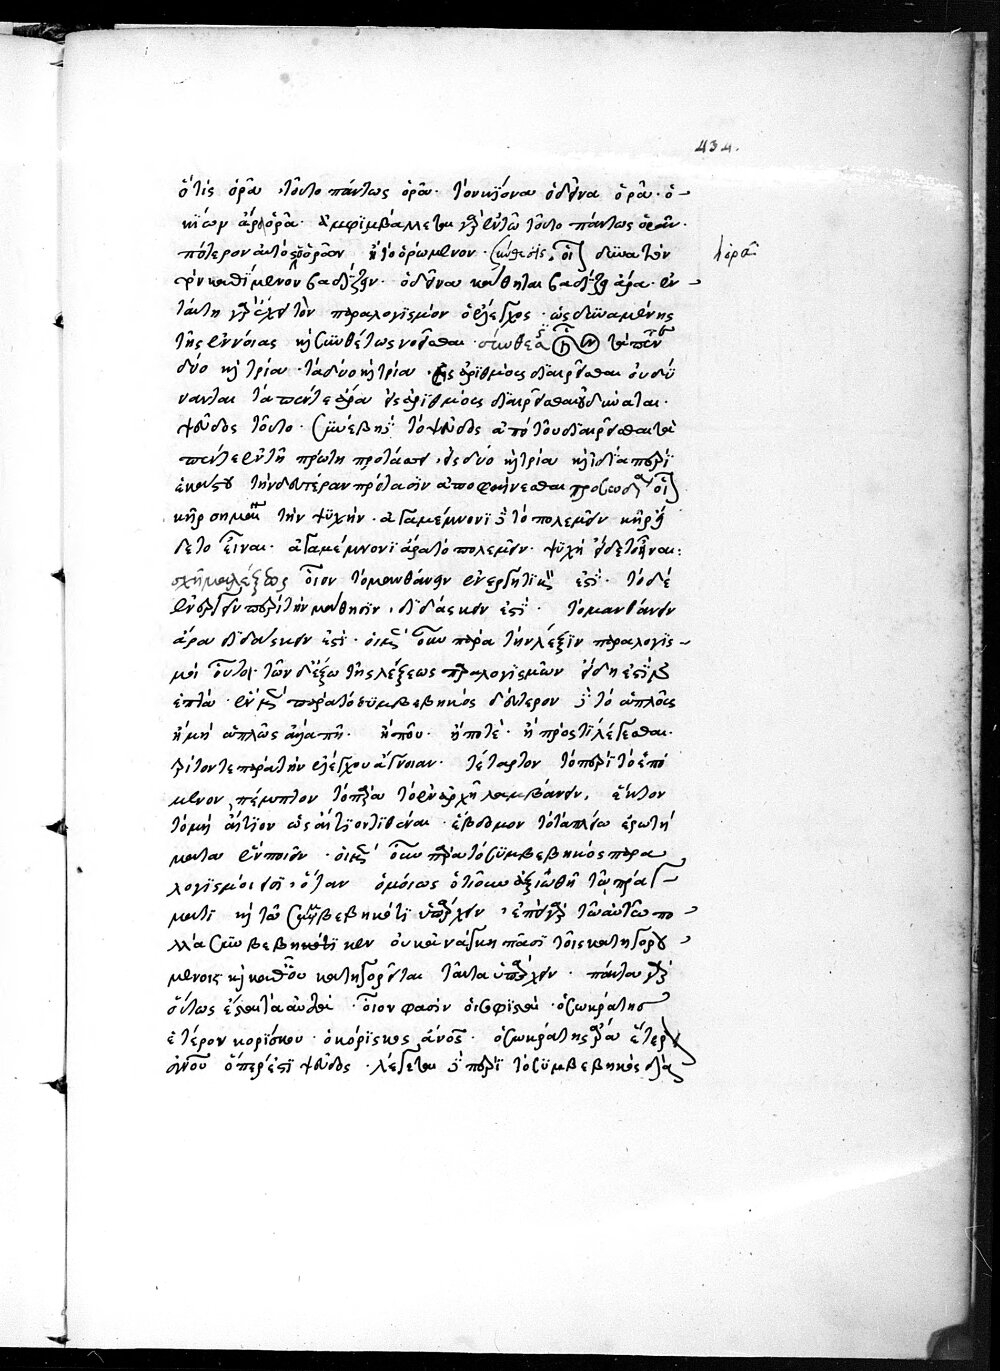 434.
ὅ τις ὁρᾶ τοῦτο πάντως ὁρᾶ· τὸν κίονα ὁ δεῖνα ὁρᾶ· ὁ
κίων ἄρα ὁρᾶ· ἀμφιβάλλεται γὰρ ἐν τῶ τοῦτο πάντως ὁρᾶν·
πότερον αὐτὸς ὁρῶν ἢ τὸ ὁρώμενον· σύνθεσις, οἷον δύνατον
ἡ ὁρᾶ
καθήμενον βαδίζειν· ὁ δεῖνα κάθηται βαδίζει ἄρα· ἐν
ταύτη γὰρ ἔχει τὸν παραλογισμὸν ὁ ἔλεγχος· ὡς δυναμένης
τῆς ἐννοίας καὶ συνθέτως νοεῖσθαι· τὰ πέντε
δύο καὶ τρία· τὰ δύο καὶ τρία εἰς ἀριθμοὺς διαιρεῖσθαι οὐ δύ
νανται τὰ πέντε ἄρα εἰς ἀριθμοὺς διαιρεῖσθαι οὐ δύναται·
ψεῦδος τοῦτο· συνέβη δὲ τὸ ψεῦδος ἀπὸ τοῦ διαιρεῖσθαι τὰ
πέντε ἐν τῆ πρώτη προτάσει εἰς δύο καὶ τρία καὶ ἰδία περὶ
ἑκάστου τὴν δευτέραν πρότασιν ἀποφαίνεσθαι προσωδία οἷον
κὴρ σημαίνει τὴν ψυχήν· ἀγαμέμνονι δὲ τὸ πολεμεῖν κὴρ
δετο εἶναι· ἀγαμέμνονι ἄρα τὸ πολεμεῖν ψυχὴ εἶναι:
σχῆμα λέξεως οἷον τὸ μανθάνειν ἐνεργητικὸν ἐστὶ· τὸ δὲ
ἐνεργεῖν περὶ τὴν μάθησιν, διδάσκειν ἐστὶ· τὸ μανθάνειν
ἄρα διδάσκειν ἐστὶ· οἱ μὲν οὖν παρὰ τὴν λέξιν παραλογισ
μοὶ οὗτοι· τῶν δὲ ἔξω τῆς λέξεως παραλογισμῶν εἴδη ἐστὶν
ἑπτά· ἓν μὲν παρὰ τὸ συμβεβηκός δεύτερον δὲ τὸ ἁπλῶς
ἢ μὴ ἁπλῶς ἀλλὰ πῆ· ἢ ποῦ· ἢ ποτὲ· ἢ πρός τι λέγεσθαι·
τρίτον τε παρὰ τὴν ἐλέγχου ἄγνοιαν· τέταρτον τὸ περὶ τὸ ἑπό
μενον, πέμπτον τὸ παρὰ τὸ ἐν ἀρχῆ λαμβάνειν, ἕκτον
τὸ μὴ αἴτιον ὡς αἴτιον τιθέναι· ἕβδομον τὸ τὰ πλείω ἐρωτή
ματα ἓν ποιεῖν· οἱ μὲν οὖν παρὰ τὸ συμβεβηκὸς παρα
λογισμοὶ εἰσὶ, ὅταν ὁμοίως ὁτιοῦν ἀξιωθῆ τῶ πράγ
ματι καὶ τῶ συμβεβηκότι ὑπάρχειν, ἐπεὶ γὰρ τῶ αὐτῶ πο
λλὰ συμβεβηκότι κεν οὐκ ἀνάγκη πᾶσι τοῖς κατηγορου
μένοις καὶ καθ' οὗ κατηγορεῖται ταῦτα ὑπάρχειν· πάντα γὰρ
οὕτως ἔσται τὰ αὐτὰ· οἷον φασὶν οἱ σοφισταὶ· ὁ σωκράτης
ἕτερον κορίσκου· ὁ κορίσκος ἄνθρωπος· ὁ σωκράτης ἄρα ἕτερον
ἀνθρώπου ὅπερ ἐστὶ ψεῦδος· λέγεται δὲ περὶ τὸ συμβεβηκὸς διὰ